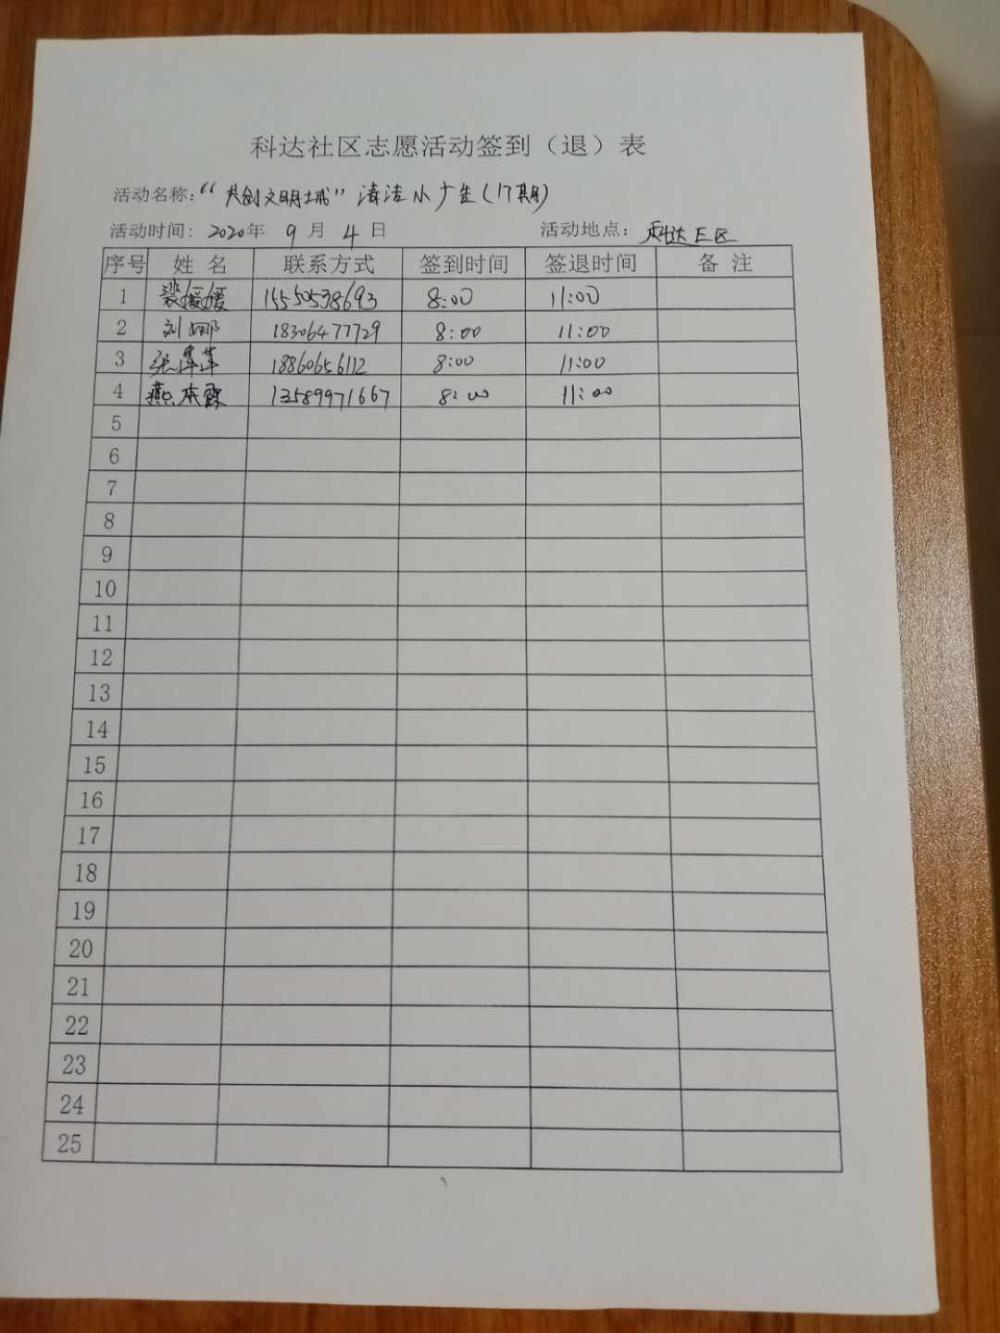 科达社区志愿活动签到（退）表
活动名称：“共创文明城”清洁小广告（17期）
活动时间：2020年 9 月 4 日 活动地点：科达E区
序号 姓 名 联系方式 签到时间 签退时间 备 注
1 梁媛媛 1550538693 8:00 11:00
2 刘娜 18306477729 8:00 11:00
3 张 18860656112 8:00 11:00
4 燕本霞 13589971667 8:00 11:00
5
6
7
8
9
10
11
12
13
14
15
16
17
18
19
20
21
22
23
24
25